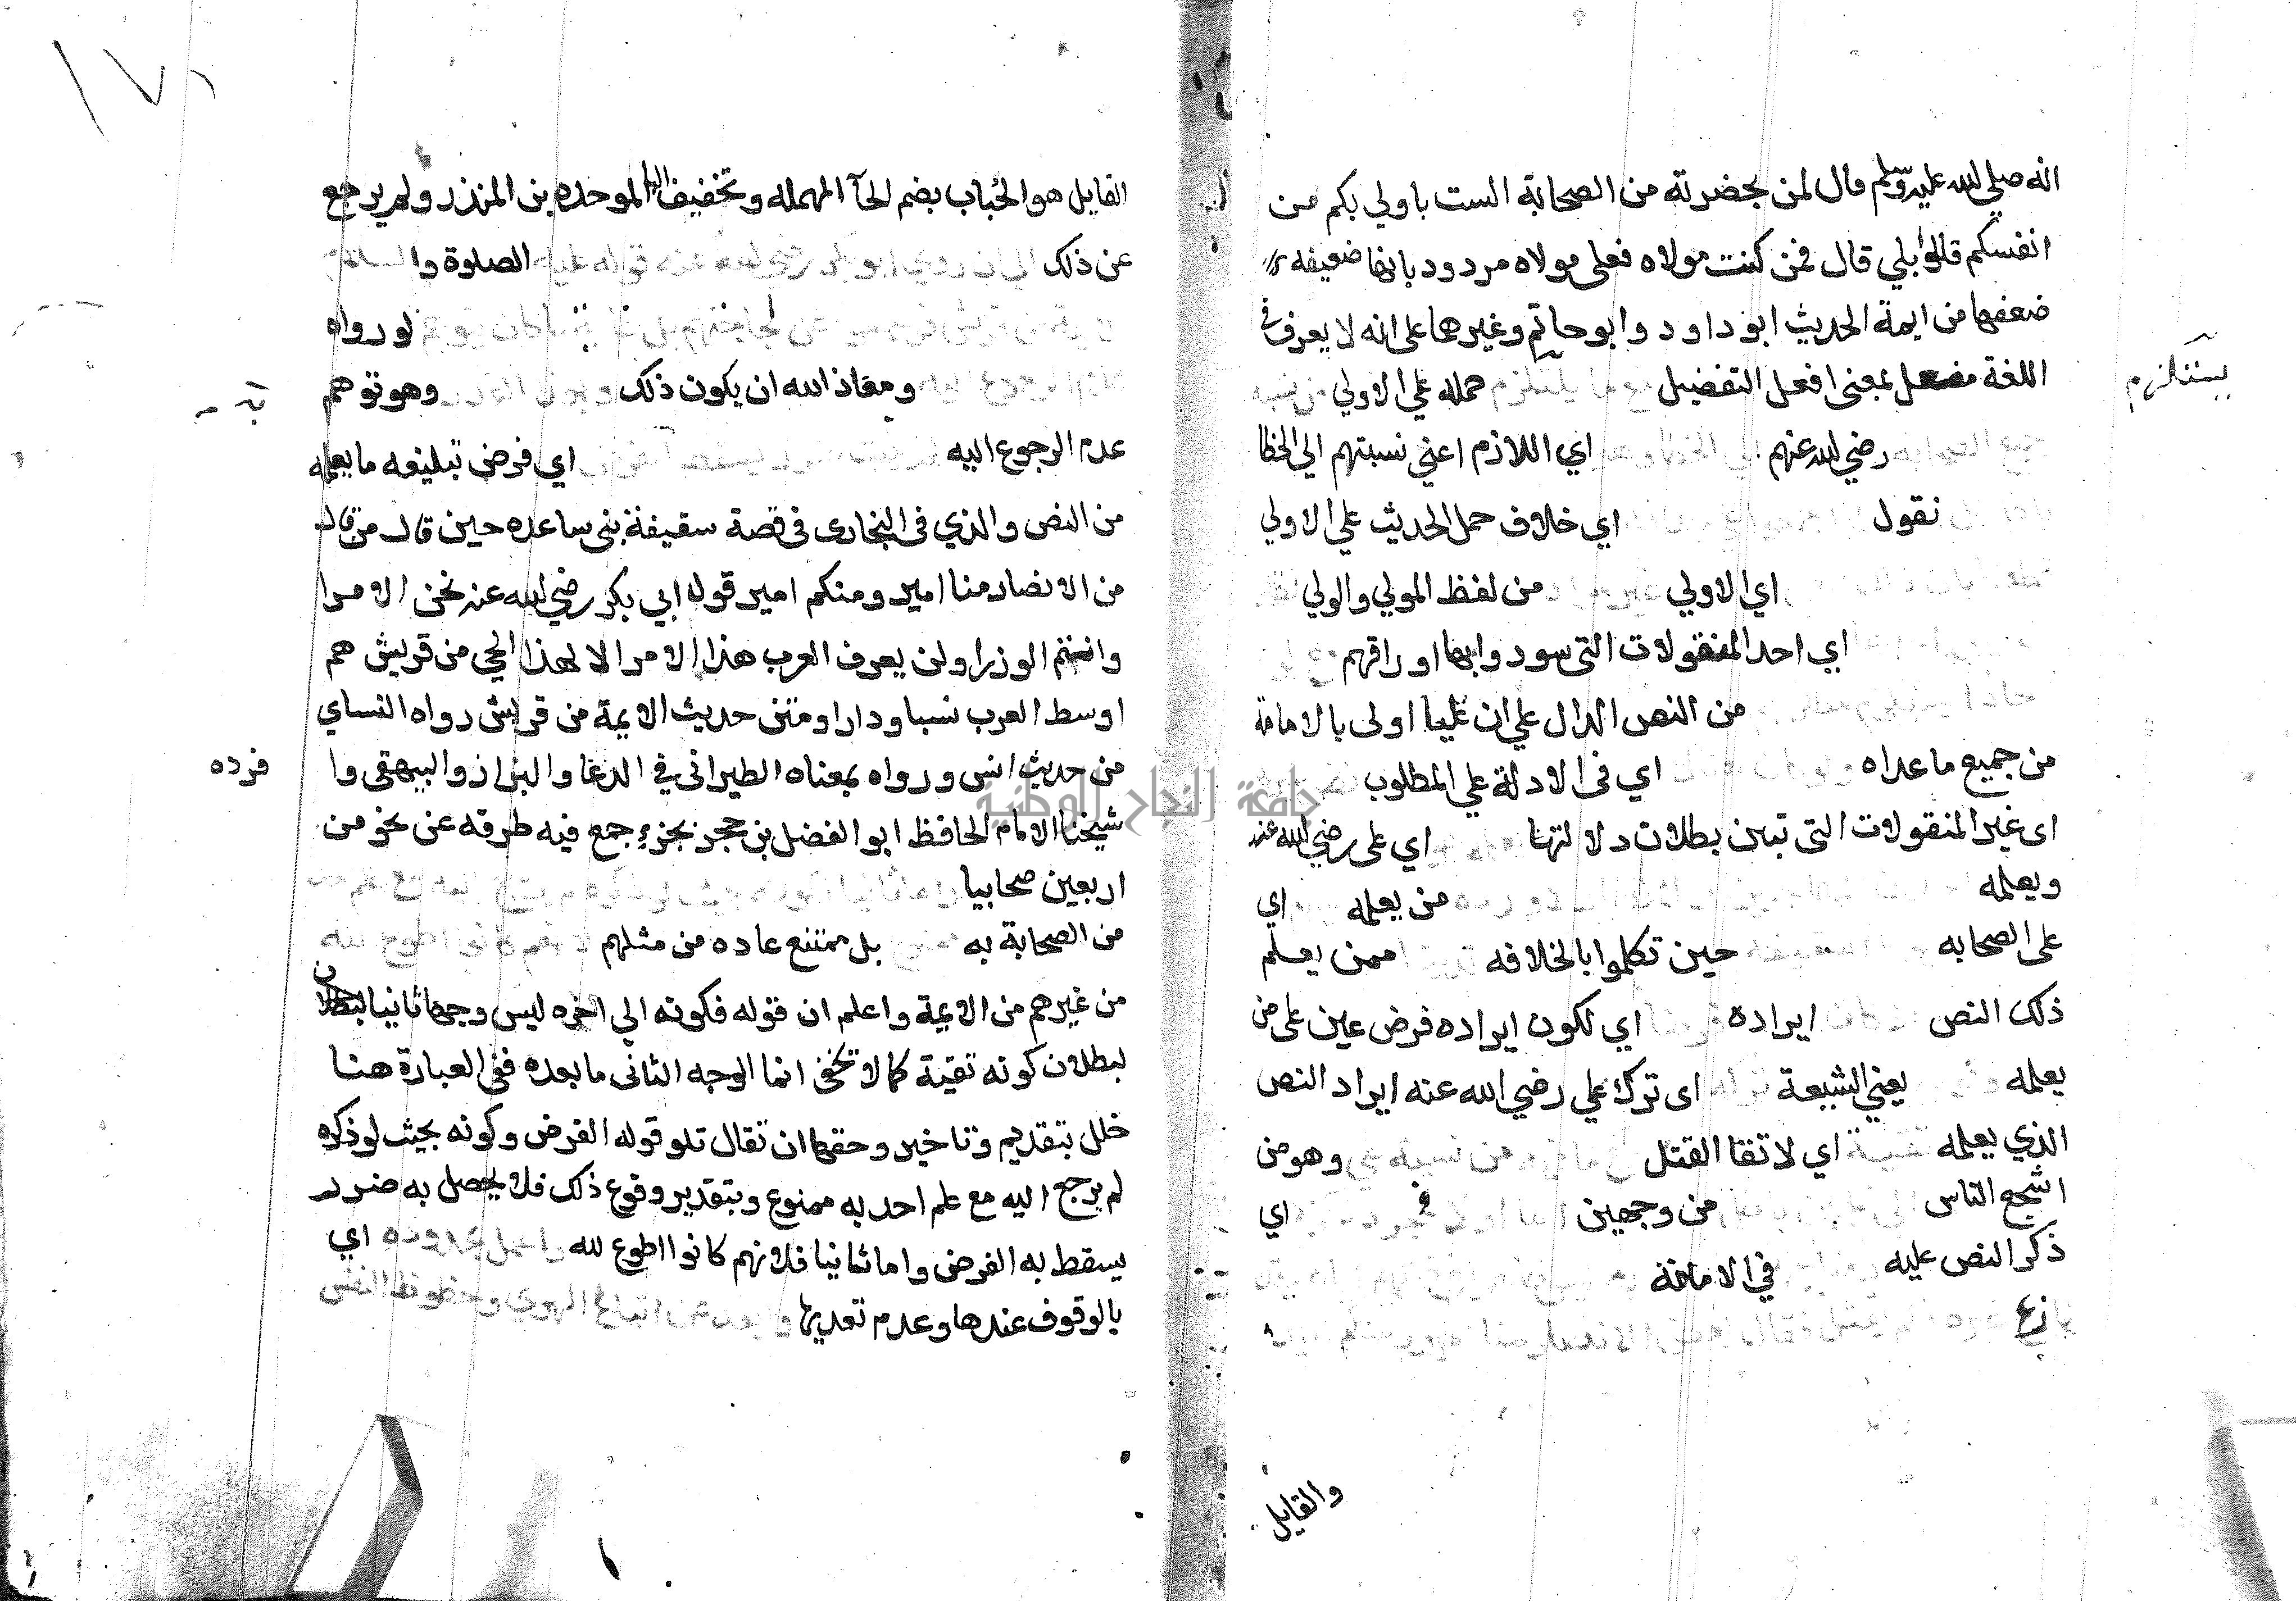 انه صلي الله عليه وسلم قال لمن بحضرته من الصحابة الست باولي بكم من
انفسكم قالوا بلي قال فمن كنت مولاه فعلي مولاه مردود بانها ضعيفه
ضعفها من ايمة الحديث ابو داود وابو حاتم وغيرهما على انه لا يعرف في
اللغة مفعل بمعنى افعل التفضيل حمله علي الاولي
يستلزم
رضي الله عنهم اي اللازم اعني نسبتهم الي الخطا
نقول اي خلاف حمل الحديث علي الاولي
اي الاولي من لفظ المولي والولي
اي احد المنقولات التى سودوا بها اوراقهم
من النص الدال علي ان عليا اولى بالامامة
من جميع ما عداه اي في الادلة علي المطلوب
اى غير المنقولات التى تبين بطلان دلالتها اي على رضي الله عنه
ويعلمه من يعلمه اي
على الصحابه حين تكلموا بالخلافه ممن يعلم
ذلك النص ايراده اي لكون ايراده فرض عين على من
يعلمه يعني الشيعة اى ترك علي رضي الله عنه ايراد النص
الذي يعلمه اي لاتقا القتل وهو من
اشجع الناس من وجهين اي
ذكر النص عليه في الامامة
والقايل
١٧١
القايل هو الحُباب بضم الحآ المهمله وتخفيف البا الموحده بن المنذر ولم يرجع
عن ذلك الصلوة وا
لو رواه
ومعاذ الله ان يكون ذلك وهو توهم
عدم الرجوع اليه اي فرض تبليغه ما يعلمه
من النص والذي في البخارى في قصة سقيفة بني ساعده حين قال من قال
من الانصار منا امير ومنكم امير قوله ابي بكر رضي الله عنه نحن الامرا
وانتم الوزرا ولن يعرف العرب هذا الامر الا لهذا الحي من قريش هم
اوسط العرب نسبا ودارا ومتن حديث الايمة من قريش رواه النساي
من حديث انس ورواه بمعناه الطبراني في الدعا والبزار والبيهقي وا
فرده
شيخنا الامام الحافظ ابو الفضل بن حجر بجزء جمع فيه طرقه عن نحو من
اربعين صحابيا
من الصحابة به بل ممتنع عاده من مثلهم
من غيرهم من الايمة واعلم ان قوله فكونه الي اخره ليس وجها ثانيا لبطلان
لبطلان كونه تقية كما لا تخفى انما الوجه الثانى ما بعده ففي العبارة هنا
خلل بتقديم وتاخير وحقها ان تقال تلو قوله الفرض وكونه بحيث لو ذكره
لم يرجع اليه مع علم احد به ممنوع وبتقدير وقوع ذلك فلا يحصل به ضرر
يسقط به الفرض واما ثانيا فلانهم كانوا اطوع لله اي
بالوقوف عندها وعدم تعديها
جامعة النجاح الوطنية